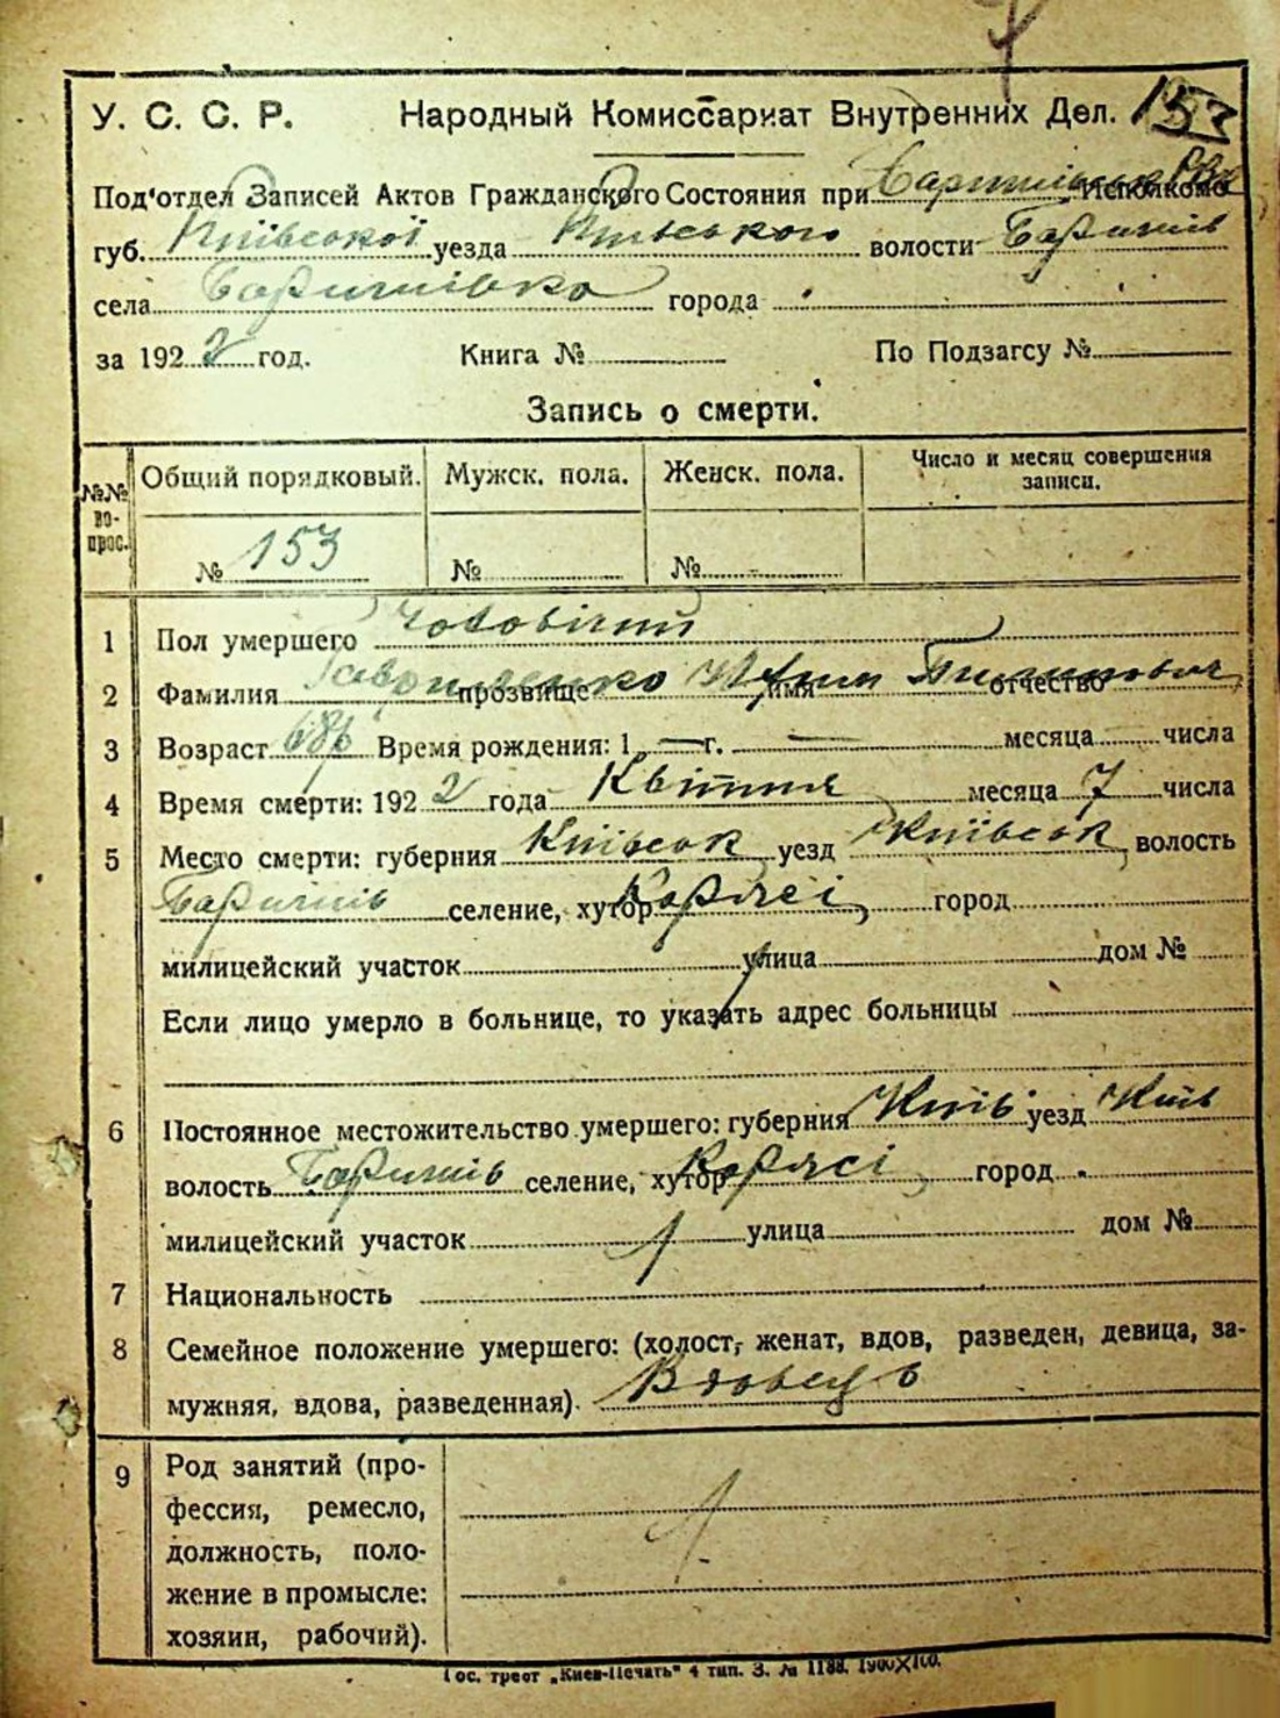 153
У. С. С. Р. Народный Комиссариат Внутренних Дел.
Под'отдел Записей Актов Гражданского Состояния при Исполкоме
губ. Київської уезда Київського волости Баришів
села Баришівка города
за 1922 год. Книга № По Подзагсу №
Запись о смерти.
№№ вопрос. Общий порядковый. Мужск. пола. Женск. пола. Число и месяц совершения записи.
№ 153 № №
1 Пол умершего Чоловічий
2 Фамилия Гавриленко прозвище имя отчество
3 Возраст 68р Время рождения: 1 — г. — месяца числа
4 Время смерти: 1922 года Квітня месяца 7 числа
5 Место смерти: губерния Київськ уезд Київськ волость
Баришів селение, хутор город
милицейский участок улица дом №
Если лицо умерло в больнице, то указать адрес больницы
6 Постоянное местожительство умершего: губерния Київ уезд Київ
волость Баришів селение, хутор город
милицейский участок улица дом №
7 Национальность
8 Семейное положение умершего: (холост, женат, вдов, разведен, девица, за-
мужняя, вдова, разведенная). Вдовець
9 Род занятий (про-
фессия, ремесло,
должность, поло-
жение в промысле:
хозяин, рабочий).
Гос. трест „Киев-Печать" 4 тип. З. № 1188. 1900X100.